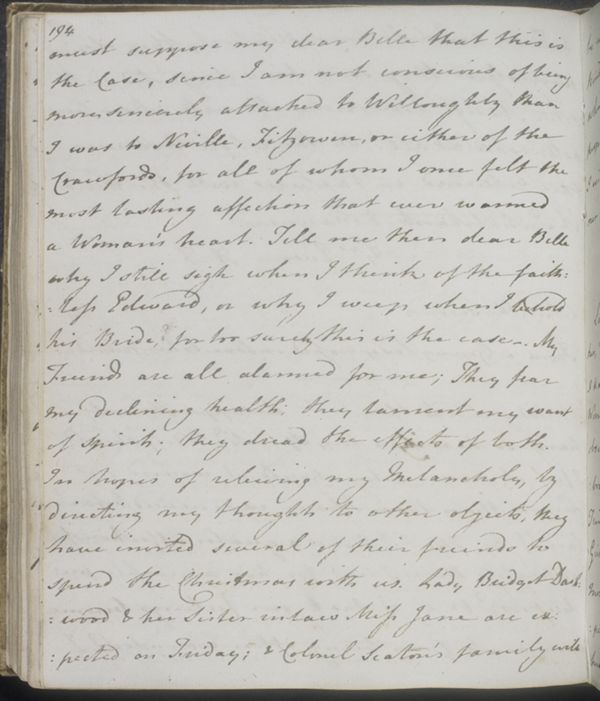 194
must suppose my dear Belle that this is
the Case, since I am not conscious of being
more sincerely attached to Willoughby than
I was to Neville, Fitzowen, or either of the
Crawfords, for all of whom I once felt the
most lasting affection that ever warmed
a Woman's heart. Tell me then dear Belle
why I still sigh when I think of the faith:
:less Edward, or why I weep when I behold
his Bride, for too surely this is the case-. My
Freinds are all alarmed for me; They fear
my declining health; they lament my want
of spirits; they dread the effects of both.
In hopes of releiving my Melancholy, by
directing my thoughts to other objects, they
have invited several of their freinds to
spend the Christmas with us. Lady Bridget Dash:
:wood & her Sister in law Miss Jane are ex:
:pected on Friday; & Colonel Seaton's family will